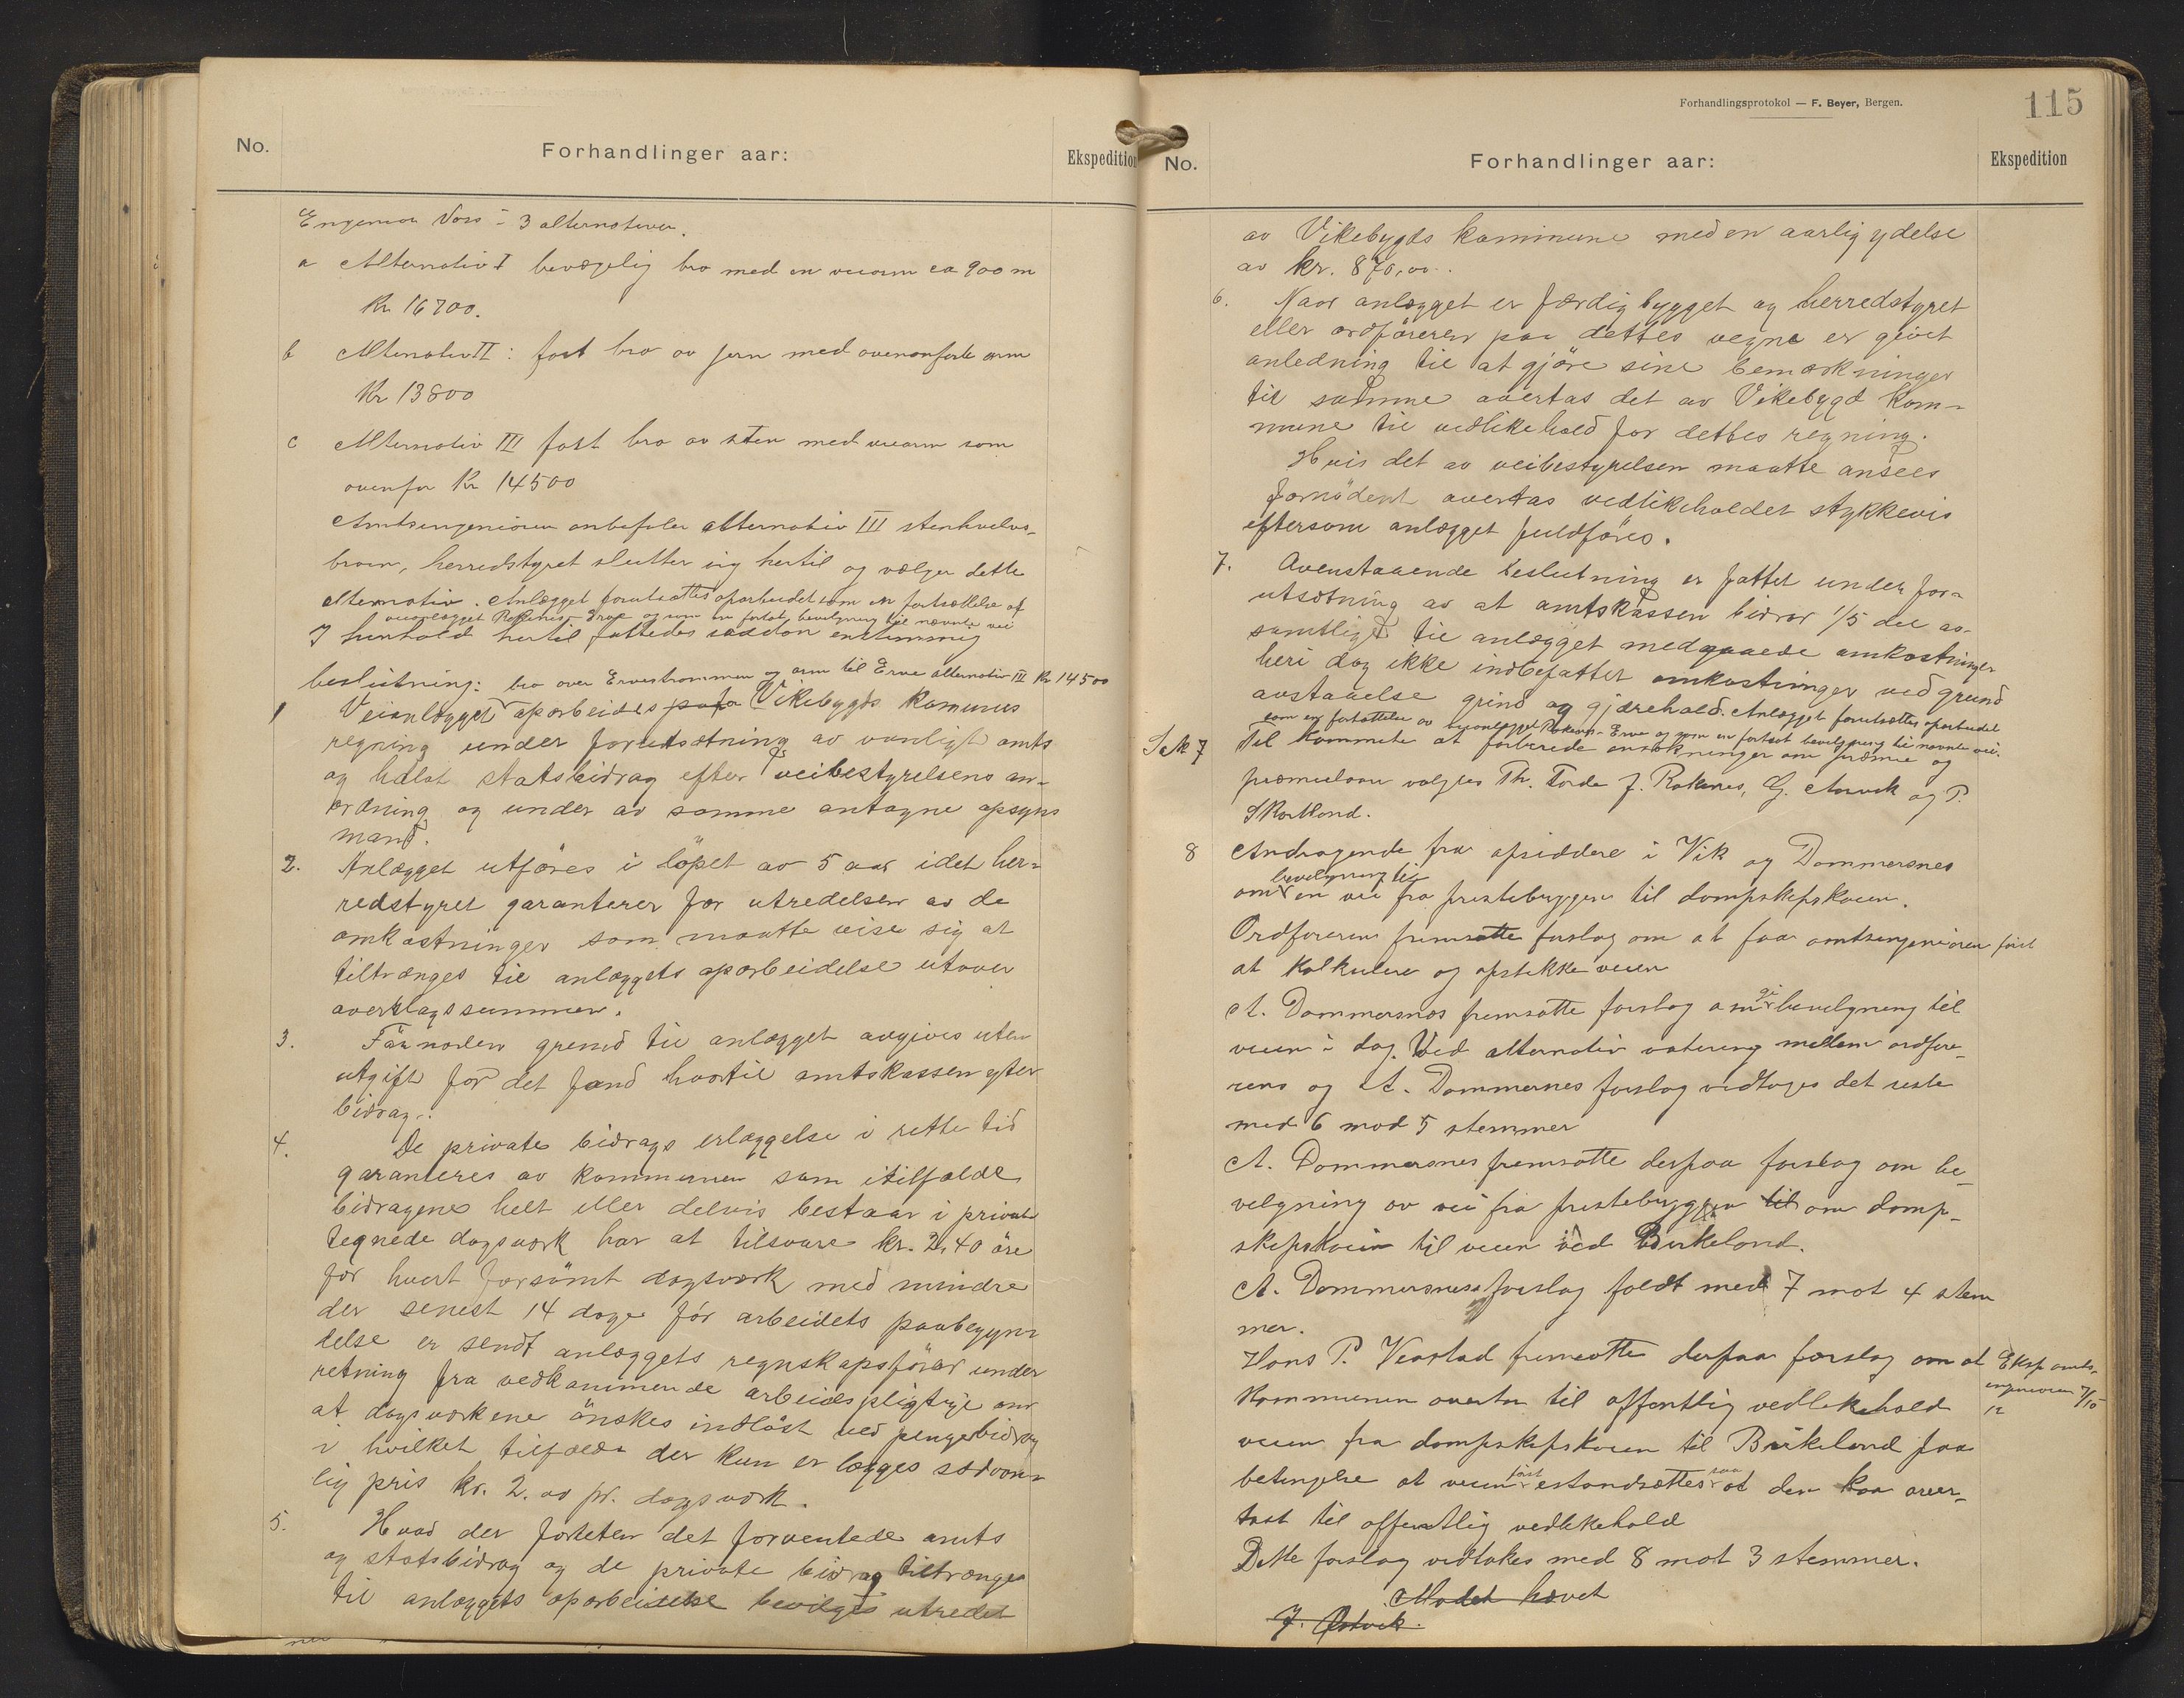 No.
Forhandlinger aar:
Ekspedition
Engeniør Vois - 3 alternativer.
a Alternativ I bevægelig bro med en veiarm ca 900 m
Kr 16700.
b Alternativ II: fast bro av jern med ovenanførte arm
Kr 13800
c Alternativ III fast bro av sten med veiarm som
ovenfor Kr 14500
Amtsingeniøren anbefaler alternativ III stenhvelvs-
broen, herredstyret slutter sig hertil og vælger dette
alternativ. Anlægget forutsættes oparbeidet som en fortsættelse af
veianlægget Røkenes-Erve og som en fortsat bevilgning til nævnte vei
I henhold hertil fattedes saadan enstemmig
beslutning: bro over Ervestrømmen og arm til Erve alternativ III Kr 14500
1 Veianlægget oparbeides paa Vikebygds Komunes
regning under forutsætning av vanligt amts
og halvt statsbidrag efter veibestyrelsens an-
ordning og under av samme antagne opsyns
mand.
2. Anlægget utføres i løpet av 5 aar idet her-
redstyret garanterer for utredelsen av de
omkostninger som maatte vise sig at
tiltrænges til anlæggets oparbeidelse utover
overslagssummen.
3. Fornøden grund til anlægget avgives uten
utgift for det fond hvortil amtskassen yter
bidrag.
4. De private bidrags erlæggelse i rette tid
garanteres av kommunen som i tilfælde
bidragene helt eller delvis bestaar i privat
tegnede dagsværk har at tilsvare kr. 2,40 øre
for hvert forsømt dagsværk med mindre
der senest 14 dage før arbeidets paabegyn-
delse er sendt anlæggets regnskapsfører under
retning fra vedkommende arbeidspligtige om
at dagsværkene ønskes indløst ved pengebidrag
i hvilket tilfælde der kun er lægges sedvan-
lig pris kr. 2.00 pr. dagsværk.
5. Hvad der forteten det forventede amts
og statsbidrag og de private bidrag tiltrænges
til anlæggets oparbeidelse bevilges utredet
Forhandlingsprotokol — F. Beyer, Bergen.
115
No.
Forhandlinger aar:
Ekspedition
av Vikebygds kommune med en aarlig ydelse
av kr. 870,00.
6. Naar anlægget er færdig bygget og herredstyret
eller ordføreren paa dettes vegne er givet
anledning til at gjøre sine bemærkninger
til samme overtas det av Vikebygd Kom-
mune til vedlikehold for dettes regning.
Hvis det av veibestyrelsen maatte ansees
fornødent overtas vedlikeholdet stykkevis
eftersom anlægget fuldføres.
7. Ovenstaaende beslutning er fattet under for-
utsætning av at amtskassen bidrar 1/5 del av
samtlige til anlægget medgaaede omkostninger
heri dog ikke indbefattet omkostninger ved grund
avstaaelse grind og gjærehold. Anlægget forutsættes oparbeidet
som en fortsættelse av veianlægget Røkenes-Erve og som en fortsat bevilgning til nævnte vei.
Sak 7 Til Kommite at forberede ansøkninger om præmie og
premielaan valgtes Th. Torde J. Røkenes, G. Alsvik og P.
Skartland.
8 Andragende fra opsiddere i Vik og Dommersnes
bevilgning til
om en vei fra prestebryggen til dampskipskaien.
Ordføreren fremsatte forslag om at faa amtsingeniøren først
at kalkulere og opstikke veien
A. Dommersnes fremsatte forslag om gi bevilgning til
veien i dag. Ved alternativ votering mellem ordføre-
rens og A. Dommersnes forslag vedtoges det siste
med 6 mod 5 stemmer
A. Dommersnes fremsatte derpaa forslag om be-
vilgning av vei fra prestebryggen til om damp-
skipskaien til veien ved Birkeland.
A. Dommersness forslag faldt med 7 mot 4 stem
mer.
Hans P. Veastad fremsatte derpaa forslag om at
Eksp amts-
ingeniøren 7/10
12
Kommunen overtar til offentlig vedlikehold
veien fra dampskipskaien til Birkeland paa
betingelse at veien først istandsættes saa at den kan over-
tast til offentlig vedlikehold
Dette forslag vedtokes med 8 mot 3 stemmer.
Mødet hævet
J. Østvik.